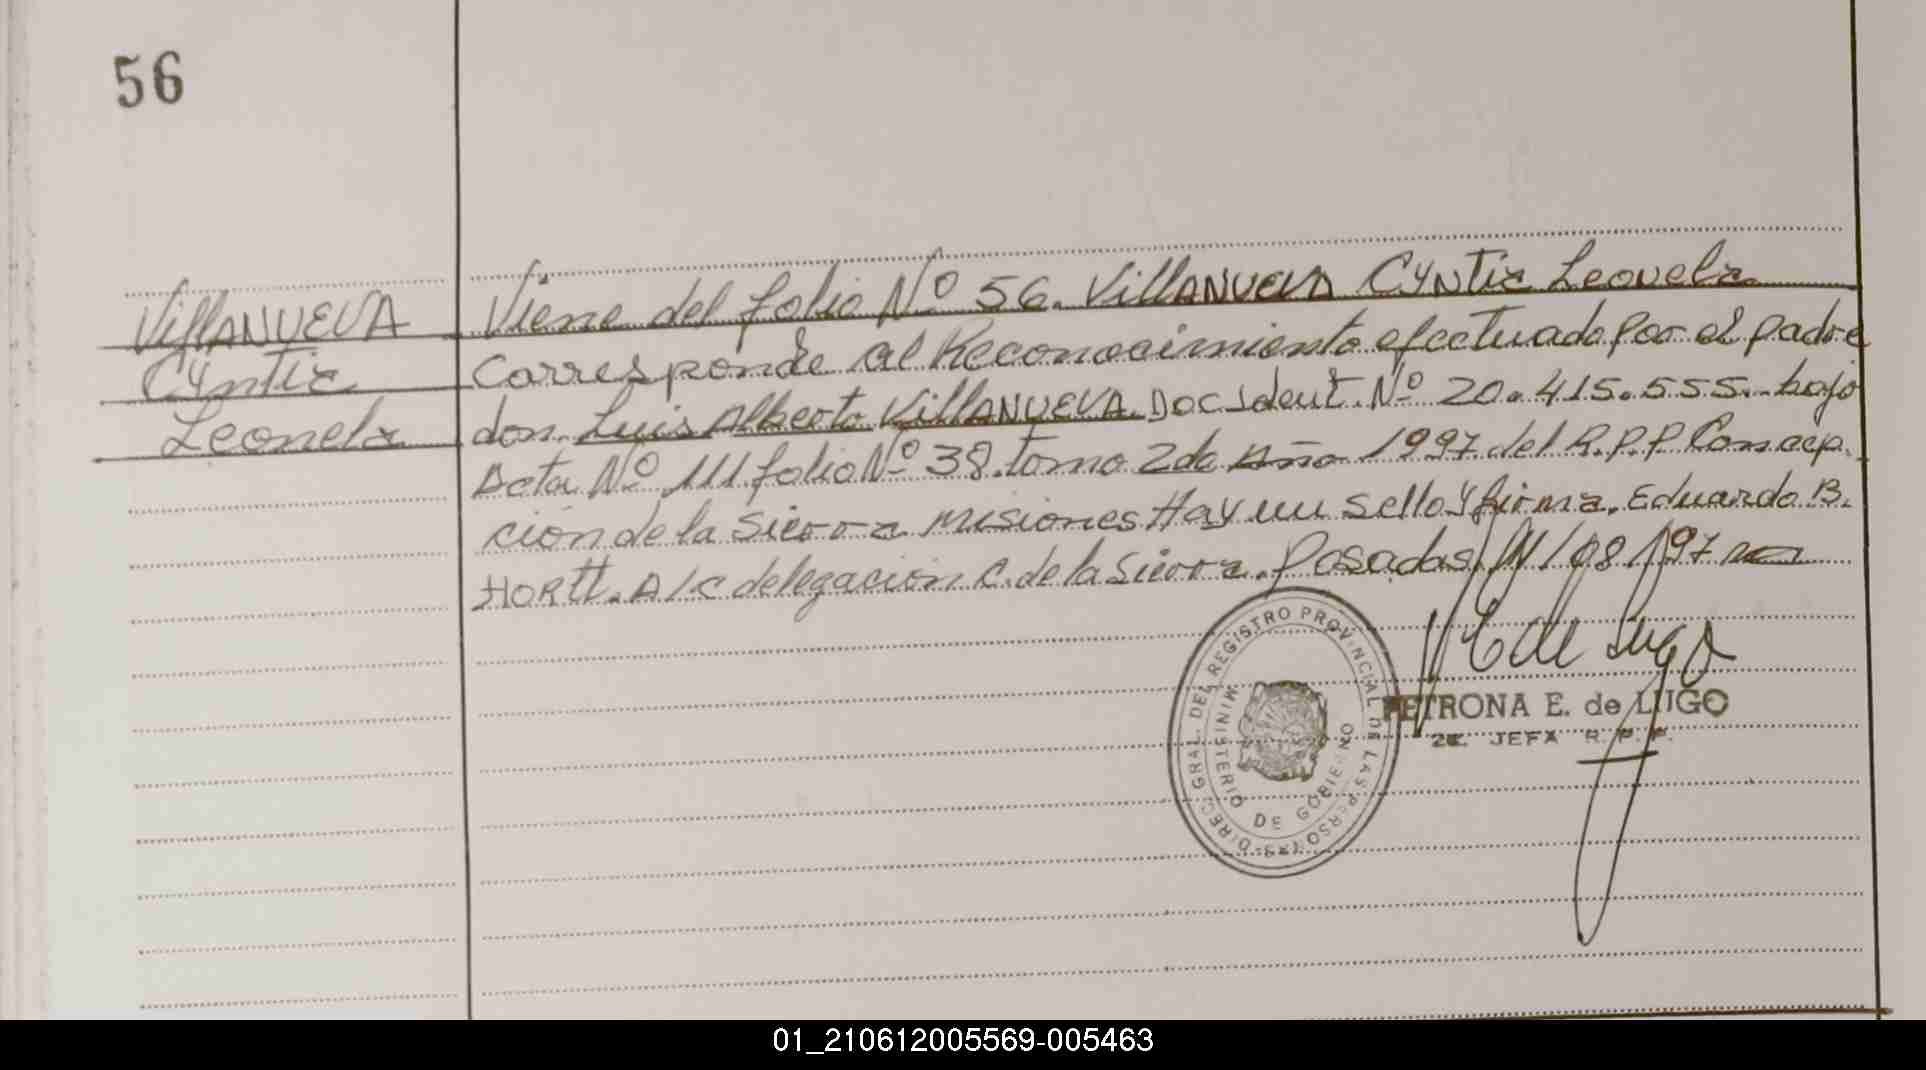 56
VillANUEVA
Cyntia
Leonela
Viene del folio Nº 56. VillANUEVA Cyntia Leonela
Corresponde al Reconocimiento efectuado por el padre
don Luis Alberto VillANUEVA Doc Ident. Nº 20.415.555. bajo
Acta Nº 111 folio Nº 38. tomo 2do Año 1997 del R.P.P Concep.
ción de la Sierra Misiones Hay un sello y firma. Eduardo B.
HORtt. A/c delegación C. de la Sierra. Posadas, /08/97
DIREC. GRAL. DEL REGISTRO PROVINCIAL DE LAS PERSONAS
MINISTERIO DE GOBIERNO
PETRONA E. de LUGO
2a. JEFA R. P. P.
01_210612005569-005463